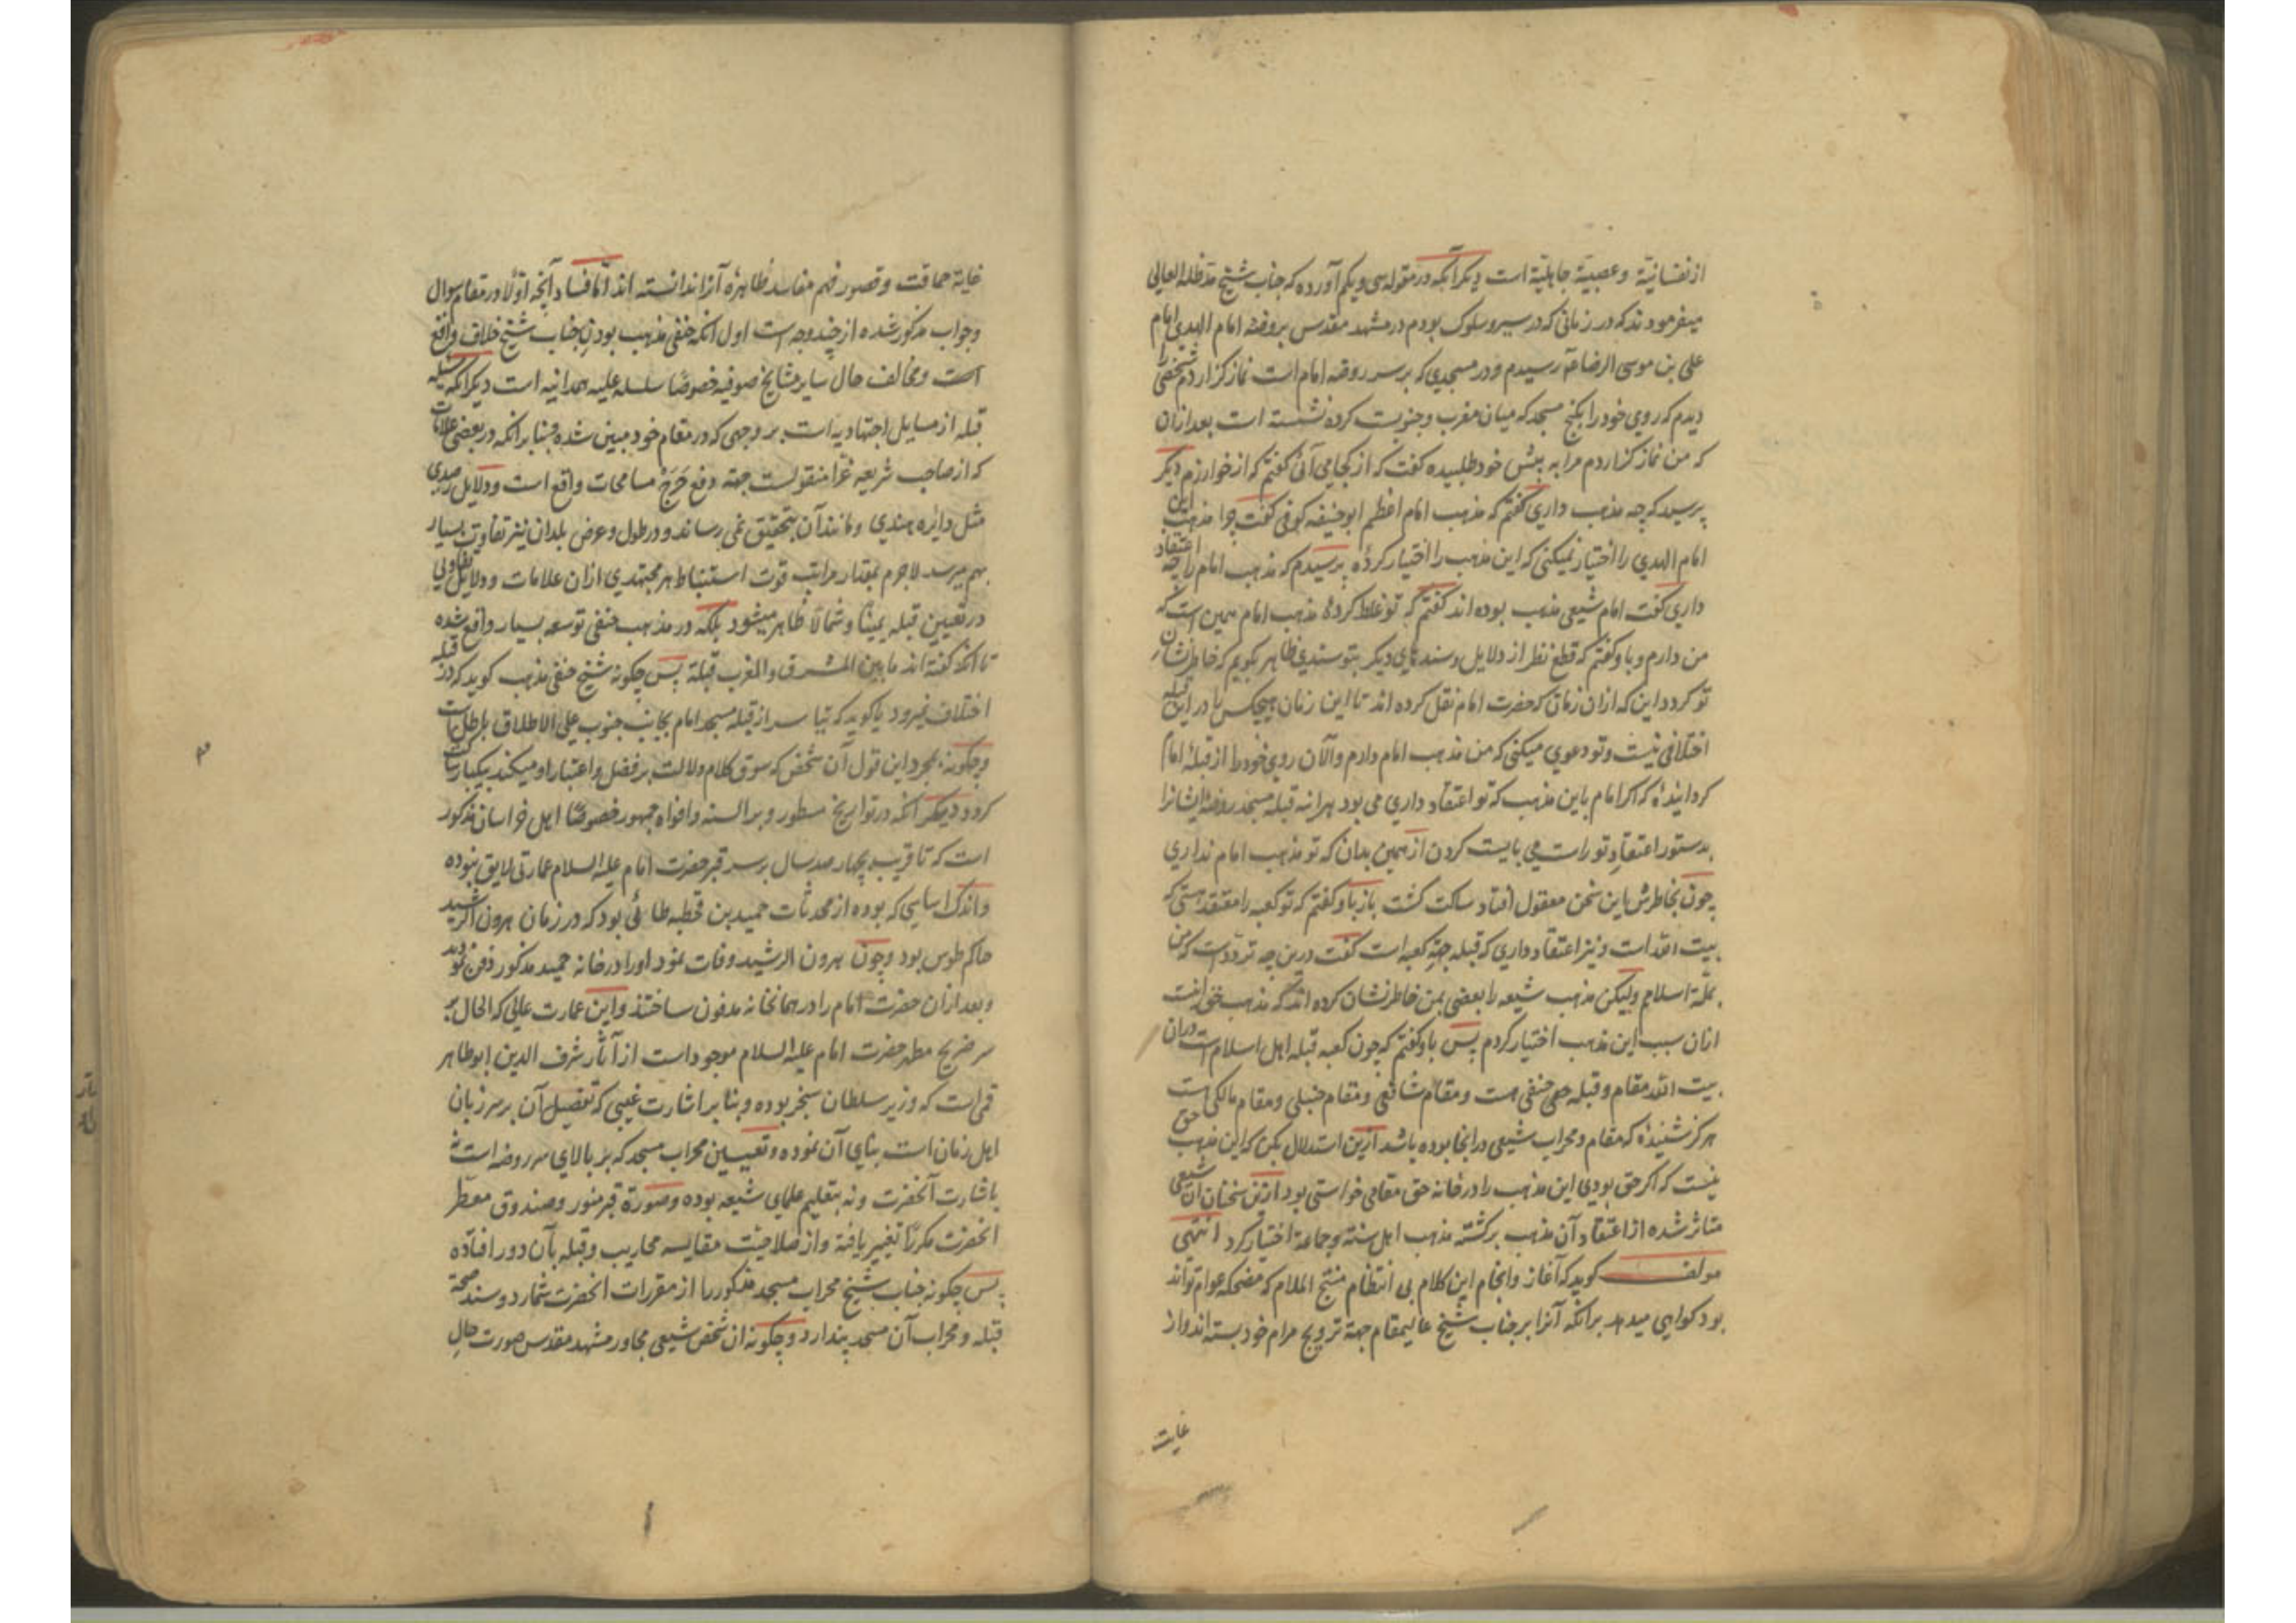 از نفسانیّة و عصبیّة جاهلیّة است دیکر آنکه در مقوله سی و یکم آورده که جناب شیخ مدّ ظله العالی
میفرمودند که در زمانی که در سیر و سلوک بودم در مشهد مقدس بروضه امام الهدی امام
علی بن موسی الرضا رسیدم و در مسجدی که بر سر روضه امام است نماز کزاردم شخصی را
دیدم که روی خود را بکنج مسجد که میان مغرب و جنوبست کرده نشسته است بعد ازان
که من نماز کزاردم مرا به پیش خود طلبیده کفت که از کجا می آئی کفتم که از خوارزم دیکر
پرسید که چه مذهب داری کفتم که مذهب امام اعظم ابو حنیفه کوفی کفت چرا مذهب این
امام الهدی را اختیار نمیکنی که این مذهب را اختیار کردهٔ پرسیدم که مذهب امام را چه اعتقاد
داری کفت امام شیعی مذهب بوده اند کفتم که تو غلط کردهٔ مذهب امام همین است که
من دارم و باو کفتم که قطع نظر از دلایل و سندهای دیکر بتو سندی ظاهر بکویم که خاطر نشان
تو کردد این که ازان زمان که حضرت امام نقل کرده اند تا این زمان هیچکس را در این قبله
اختلافی نیست و تو دعوی میکنی که من مذهب امام دارم و الآن روی خود را از قبلهٔ امام
کردانیدهٔ که اکر امام باین مذهب که تو اعتقاد داری می بود هرآینه قبله مسجد روضهٔ ایشانرا
بدستور اعتقاد تو راست می بایست کردن از همین بدان که تو مذهب امام نداری
چون بخاطرش این سخن معقول افتاد ساکت کشت باز باو کفتم که تو کعبه را معتقد هستی که
بیت الله است و نیز اعتقاد داری که قبله جهة کعبه است کفت درین چه تردّد است که من
بملّة اسلام ولیکن مذهب شیعه را بعضی بمن خاطر نشان کرده اند که مذهب حق اینست
ازان سبب این مذهب اختیار کردم پس باو کفتم که چون کعبه قبله اهل اسلام است دران
بیت الله مقام و قبله حق حنفی هست و مقام شافعی و مقام حنبلی و مقام مالکی هست
هرکز شنیدهٔ که مقام و محراب شیعی در انجا بوده باشد ازین استدلال بکن که این مذهب حق
نیست که اکر حق بودی این مذهب را در خانه حق مقامی خواستی بود ازین سخنان آن شیعی
متاثر شده از اعتقاد آن مذهب برکشته مذهب اهل سنة و جماعة اختیار کرد انتهی
مولف کوید که آغاز و انجام این کلام بی انتظام منتج الملام که مضحکه عوام تواند
بود کواهی میدهد برانکه آنرا بر جناب شیخ عالیمقام جهة ترویج مرام خود بسته اند و از
غایت
غایة حماقت و قصور فهم مفاسد ظاهرهٔ آنرا ندانسته اند امّا فساد آنچه اوّلا در مقام سوال
و جواب مذکور شده از چند وجه است اول آنکه حنفی مذهب بودن جناب شیخ خلاف واقع
است و مخالف حال سایر مشایخ صوفیه خصوصا سلسله علیه همدانیه است دیکر آنکه مسئله
قبله از مسایل اجتهادیه است بر وجهی که در مقام خود مبین شده و بنا بر آنکه در بعضی علامات
که از صاحب شریعه غرّا منقولست جهة دفع حَرَج مسامحات واقع است و دلایل رصدی
مثل دایره هندی و مانند آن بتحقیق نمی رساند و در طول و عرض بلدان نیز تفاوت بسیار
بهم میرسد لاجرم بمقدار مراتب قوت استنباط هر مجتهدی ازان علامات و دلایل تفاوتی
در تعیین قبله یمینًا و شمالًا ظاهر میشود بلکه در مذهب حنفی توسعه بسیار واقع شده
تا آنکه کفته اند ما بین المشرق والمغرب قبلة پس چکونه شیخ حنفی مذهب کوید که در قبله
اختلاف نمیرود یا کوید که تیاسر از قبله مسجد امام بجانب جنوب علی الاطلاق باطل است
و چکونه بمجرد این قول آن شخص که سوق کلام دلالت بر فضل و اعتبار او میکند بیکبار ساکت
کردد دیکر آنکه در تواریخ مسطور و بر السنه و افواه جمهور خصوصًا اهل خراسان مذکور
است که تا قریب بچهار صد سال بر سر قبر حضرت امام علیه السلام عمارتی لایق نبوده
و اندک اساسی که بوده از محدثات حمید بن قحطبه طائی بود که در زمان هرون الرشید
حاکم طوس بود و چون هرون الرشید وفات نمود او را در خانه حمید مذکور دفن نمودند
و بعد ازان حضرت امام را در همانخانه مدفون ساختند و این عمارت عالی که الحال بر
سر ضریح مطهر حضرت امام علیه السلام موجود است از آثار شرف الدین ابو طاهر
قمی است که وزیر سلطان سنجر بوده و بنا بر اشارت غیبی که تفصیل آن بر سر زبان
اهل زمان است بنای آن نموده و تعیین محراب مسجد که بر بالای سر روضه است نه
باشارت آنحضرت و نه بتعلیم علمای شیعه بوده و صورة قبر منور و صندوق معطر
آنحضرت مکررًا تغییر یافته و از صلاحیت مقایسه محاریب و قبله بآن دور افتاده
پس چکونه جناب شیخ محراب مسجد مذکور را از مقررات آنحضرت شمارد و سند صحة
قبله و محراب آن مسجد پندارد و چکونه آن شخص شیعی مجاور مشهد مقدس صورت حال